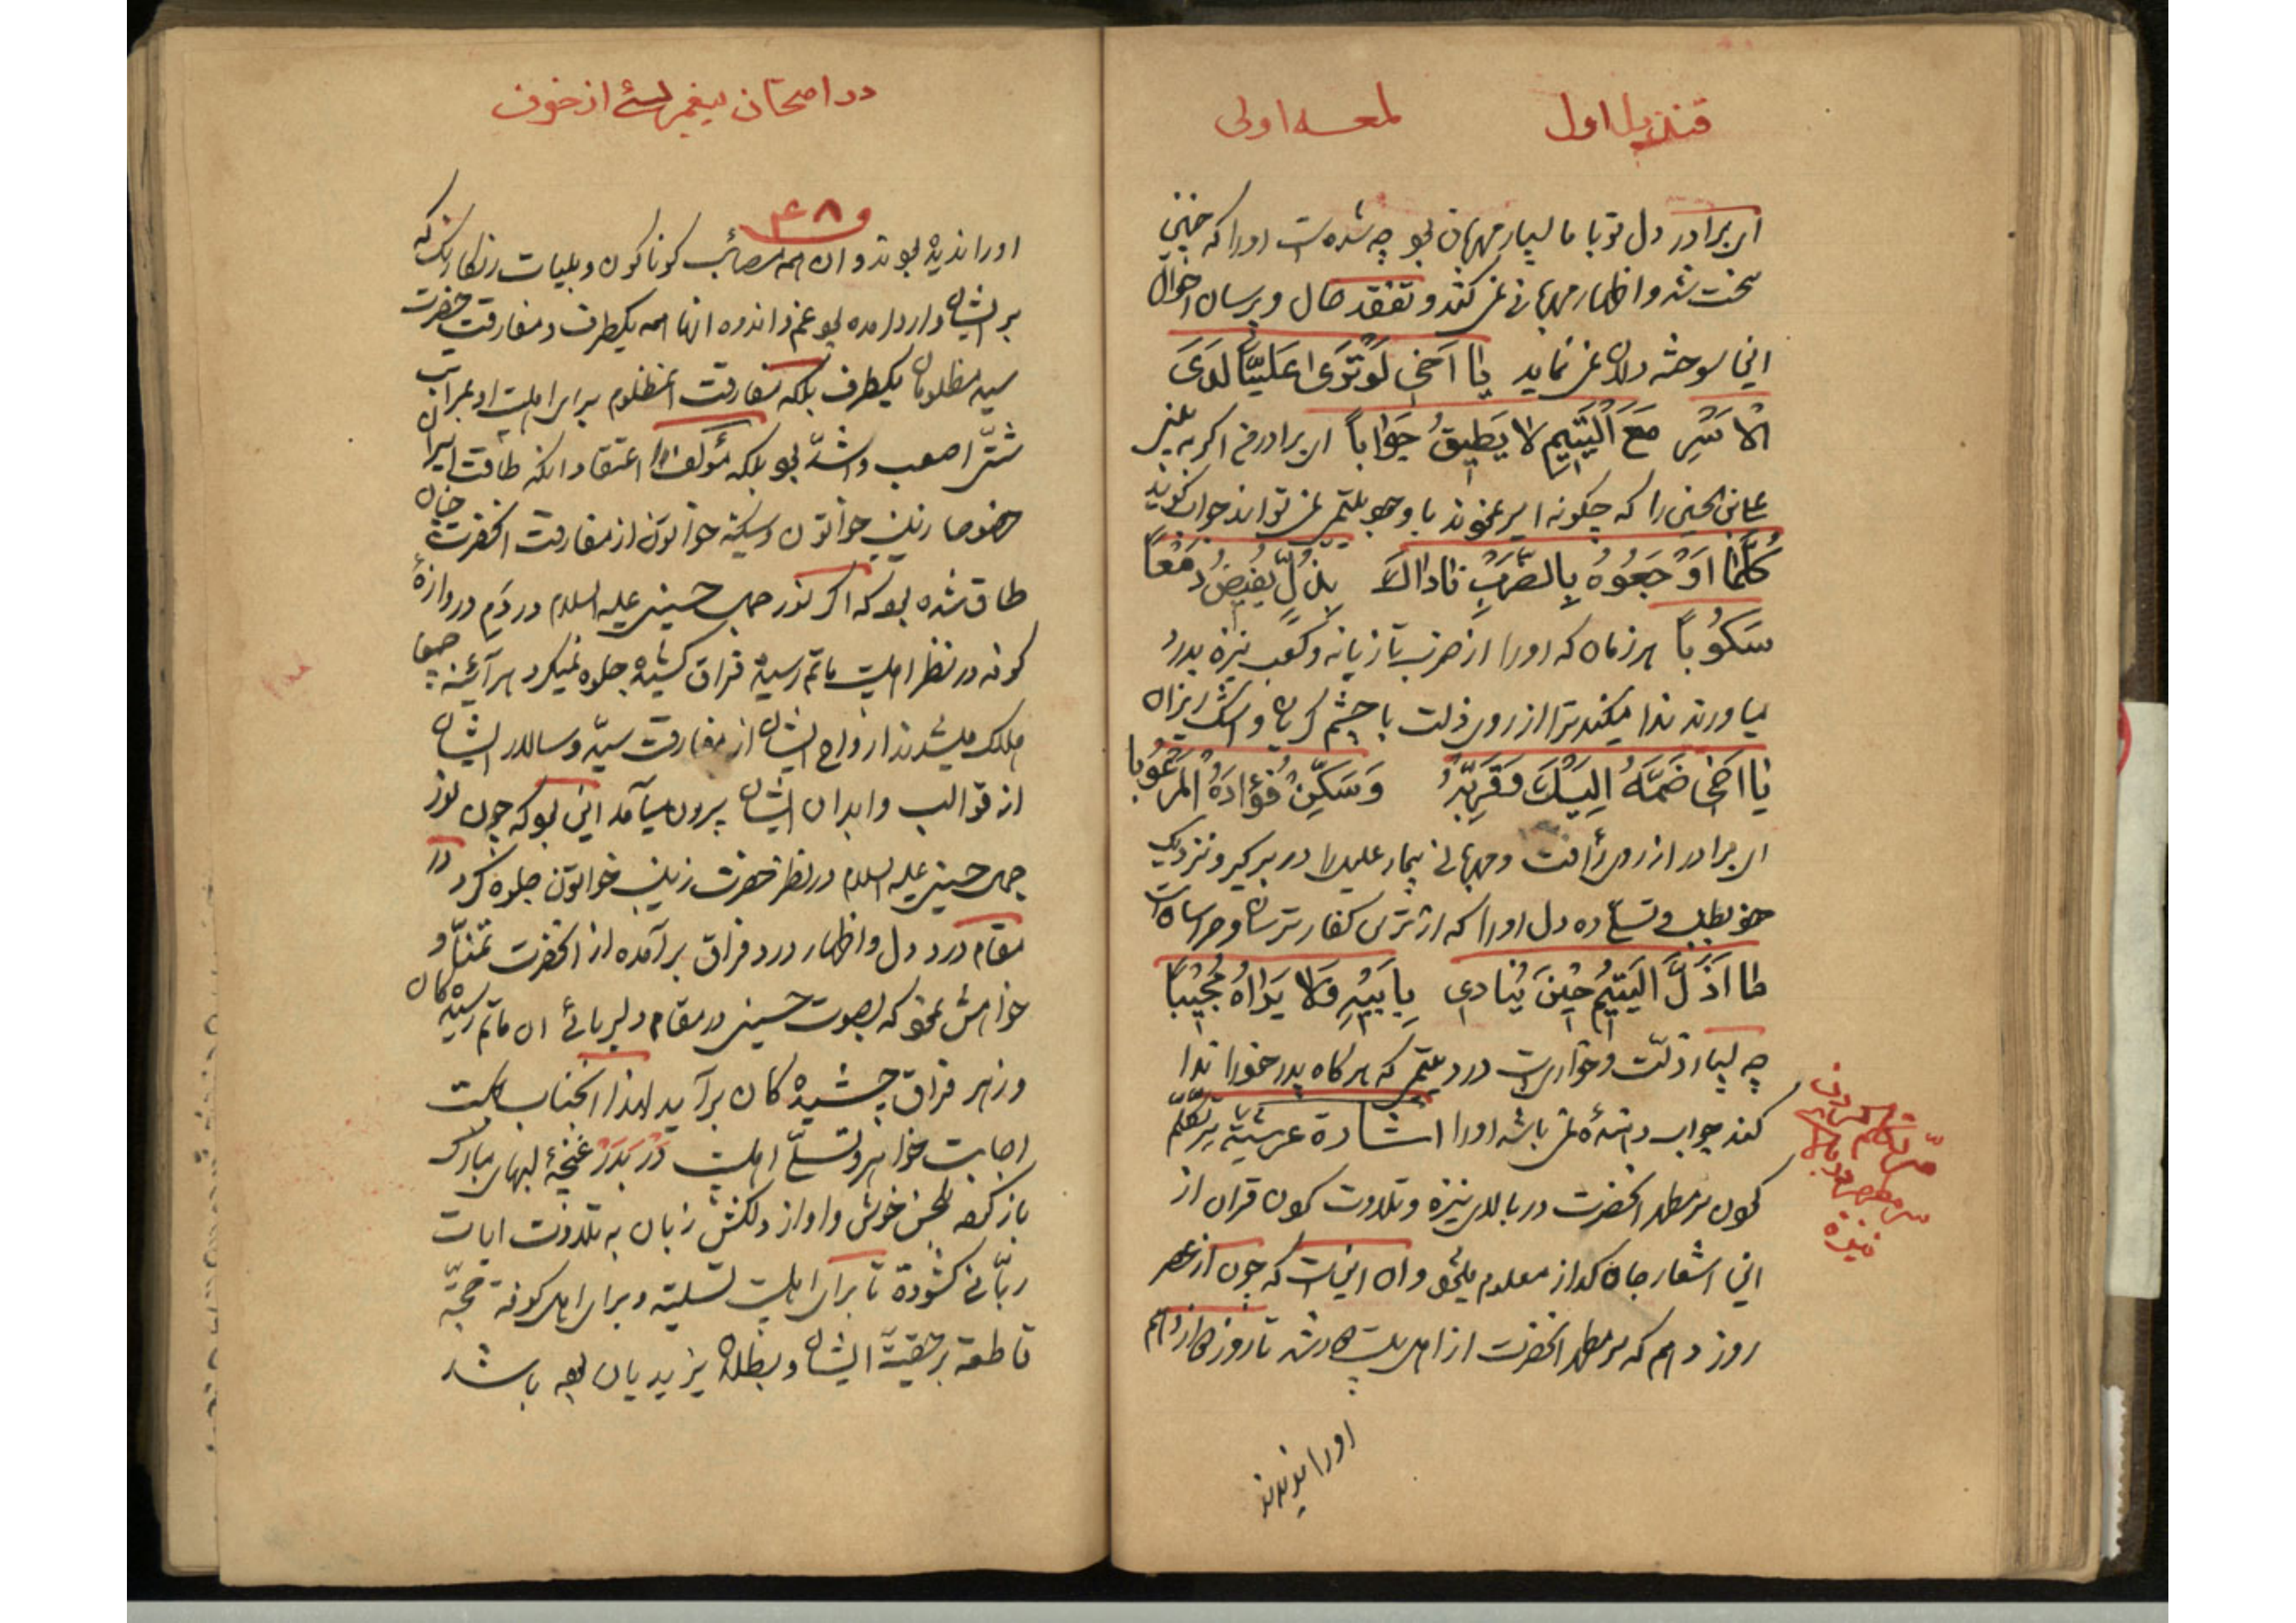 قندیل اول
لمعه اولی
ای برادر دل تو با ما بسیار مهربان بود چه شده است او را که چنین
سخت شد و اظهار مهربانی نمی کند و تفقد حال و پرسان احوال
این سوخته دلان نمی نماید یا اخی لو تری علیّا لدی
الاسر مع الیتیم لا یطیق جوابا ای برادر من اگر به بینی
علی بن الحسین را که چگونه اسیر نمودند با وجود یتیمی نمی تواند جواب گوید
کلما اوجعوه بالضرب ناداک بذلّ یفیض دمعا
سکوبا هر زمان که او را از ضرب تازیانه و کعب نیزه بدرد
میاورند ندا میکند ترا از روی ذلت با چشم گریان و اشک ریزان
یا اخی ضمه الیک و قربه و سکّن فؤاده المرعوبا
ای برادر از روی رأفت و مهربانی بیمار علیل را در بر گیر و نزدیک
خود بطلب و تسلی ده دل او را که از ترس کفار ترسان و هراسان است
ما اذلّ الیتیم حین ینادی بابیه و لا یراه مجیبا
چه بسیار ذلت و خواریست در یتیمی که هر گاه پدر خود را ندا
کند جواب دهنده نمی باشد او را اشارة عرشیة سرّ تکلم
کردن سر مطهر آنحضرت در بالای نیزه و تلاوت کردن قرآن از
این اشعار جان گداز معلوم میشود و آن اینست که چون از عصر
روز دهم که سر مطهر آنحضرت از اهل بیت جدا شد تا روز دوازدهم
او را ندیدند
سرّ تکلم کردن
سر مطهر در بالای
نیزه
در امتحان پیغمبر از خون
۴۸
او را ندیده بودند و آن همه مصائب گوناگون و بلیات رنگارنگ که
بر ایشان وارد آمده بود غم و اندوه آنها همه یکطرف و مفارقت حضرت
سید مظلومان یکطرف بلکه مفارقت آنمظلوم برای اهلبیت او بمراتب
شتّی اصعب و اشدّ بود بلکه مؤلف را اعتقاد آنکه طاقت اسیران
خصوصا زینب خواتون و سکینه خواتون از مفارقت آنحضرت چنان
طاق شده بود که اگر نور جمال حسین علیه السلام در دم دروازهٔ
کوفه در نظر اهلبیت ماتم رسیده فراق کشیده جلوه نمیکرد هر آئینه جمیعا
هلاک میشدند ارواح ایشان از مفارقت سید و سالار ایشان
از قوالب و ابدان ایشان بیرون میآمد این بود که چون نور
جمال حسین علیه السلام در نظر حضرت زینب خواتون جلوه کرد در
مقام درد دل و اظهار درد فراق بر آمده از آنحضرت تمنّا و
خواهش نمود که بصوت حسین در مقام دلبربائی آن ماتم رسیدگان
و زهر فراق چشیدگان برآید لهذا آنجناب بجهت
اجابت خواهر و تسلّی اهلبیت غنچهٔ لبهای مبارک
باز کرده بلحن خوش و آواز دلکش زبان به تلاوت آیات
ربّانی گشوده تا برای اهلبیت تسلیة و برای اهل کوفه حجّة
قاطعة بر حقیّت ایشان و بطلان یزیدیان بوده باشد